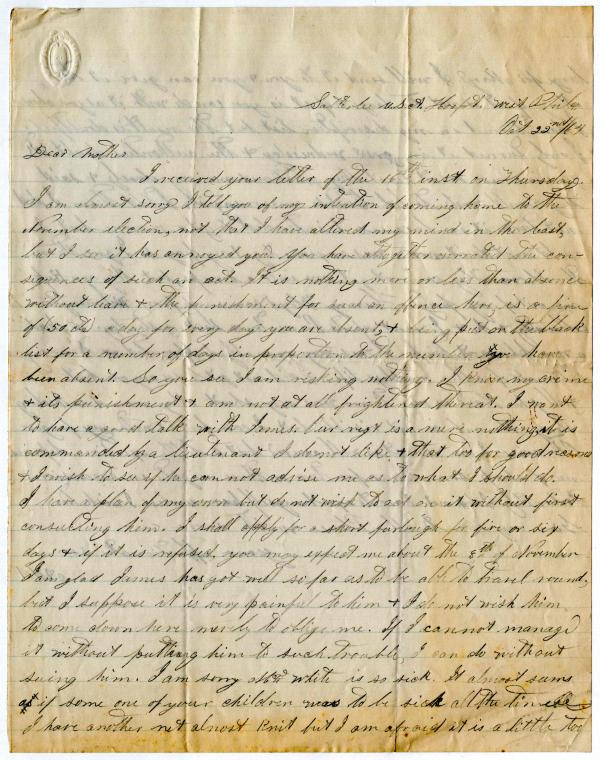 Satterlee U.S.A. Hospt. West Phila
Oct 22nd/64
Dear Mother
I received your letter of the 18th inst on Thursday.
I am almost sorry I told you of my intention of coming home to the
November election, not that I have altered my mind in the least,
but I see it has annoyed you. You have altogether overrated the con-
sequences of such an act. It is nothing more or less than absence
without leave & the punishment for such an offence here, is a fine
of (50 cts) a day for every day you are absent, & being put on the black
list for a number of days in proportion to the number you have
been absent. So you see I am risking nothing. I know my crime
& its punishment & am not at all frightened thereat. I want
to have a good talk with James. Our regt is a mere nothing, it is
commanded by a lieutenant I do not like & that too for good reasons
& I wish to see if he cannot advise me as to what I should do.
I have a plan of my own but do not wish to act on it without first
consulting him. I shall apply for a short furlough for five or six
days & if it is refused, you may expect me about the 8th of November
I am glad James has got well so far as to be able to travel round,
but I suppose it is very painful to him & I do not wish him
to come down here merely to oblige me. If I cannot manage
it without putting him to such trouble, I can do without
seeing him. I am sorry Mrs White is so sick. It almost seems
as if some one of your children was to be sick all the time
I have another net almost knit but I am afraid it is a little too